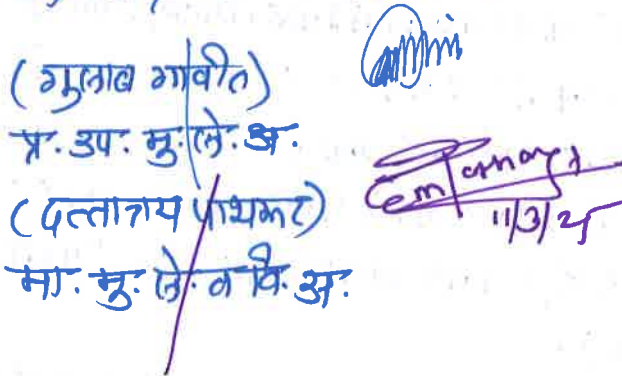 (गुलाब गावीत)
प्र. उप. मु. ले. अ.
(दत्तात्रय पाथरकर)
मा. मु. ले. व वि. अ.
11/3/25